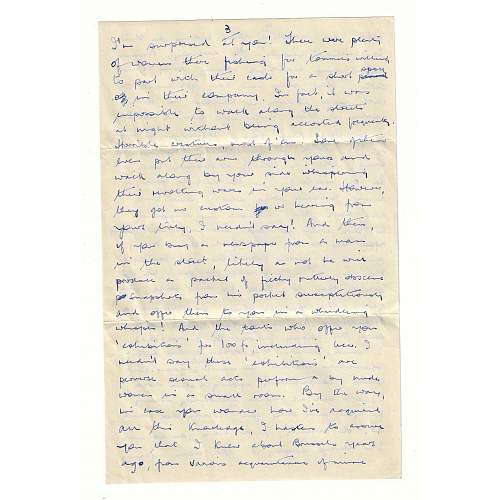 3
I'm surprised at you! There were plenty
of women there fishing for tommies willing
to part with their cash for a short spasm
in their company. In fact, it was
impossible to walk along the streets
at night without being accosted frequently.
Horrible creatures most of 'em. Some of them
even put their arm through yours and
walk along by your side whispering
their revolting wares in your ear. However,
they got no custom or hearing from
yours truly, I needn't say! And then,
if you buy a newspaper from a man
in the street, likely as not he will
produce a packet of filthy entirely obscene
snapshots from his pocket surreptitiously
and offer them to you in a wheedling
whisper! And the touts who offer you
'exhibitions' for 100 fr including beer. I
needn't say these 'exhibitions' are
perverse sexual acts performed by nude
women in a small room. By the way,
in case you wonder how I've acquired
all this knowledge, I hasten to assure
you that I knew about Brussels years
ago, from various acquaintances of mine